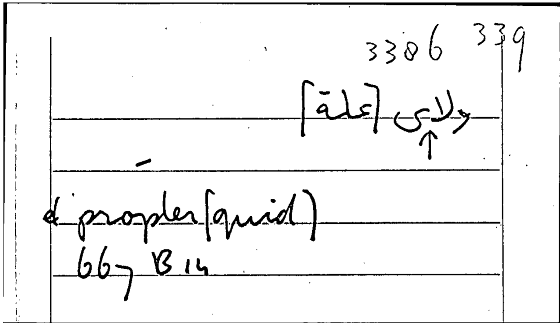 3386 339
ولاى [علة]
↑
et propter (quid)
667 B 14